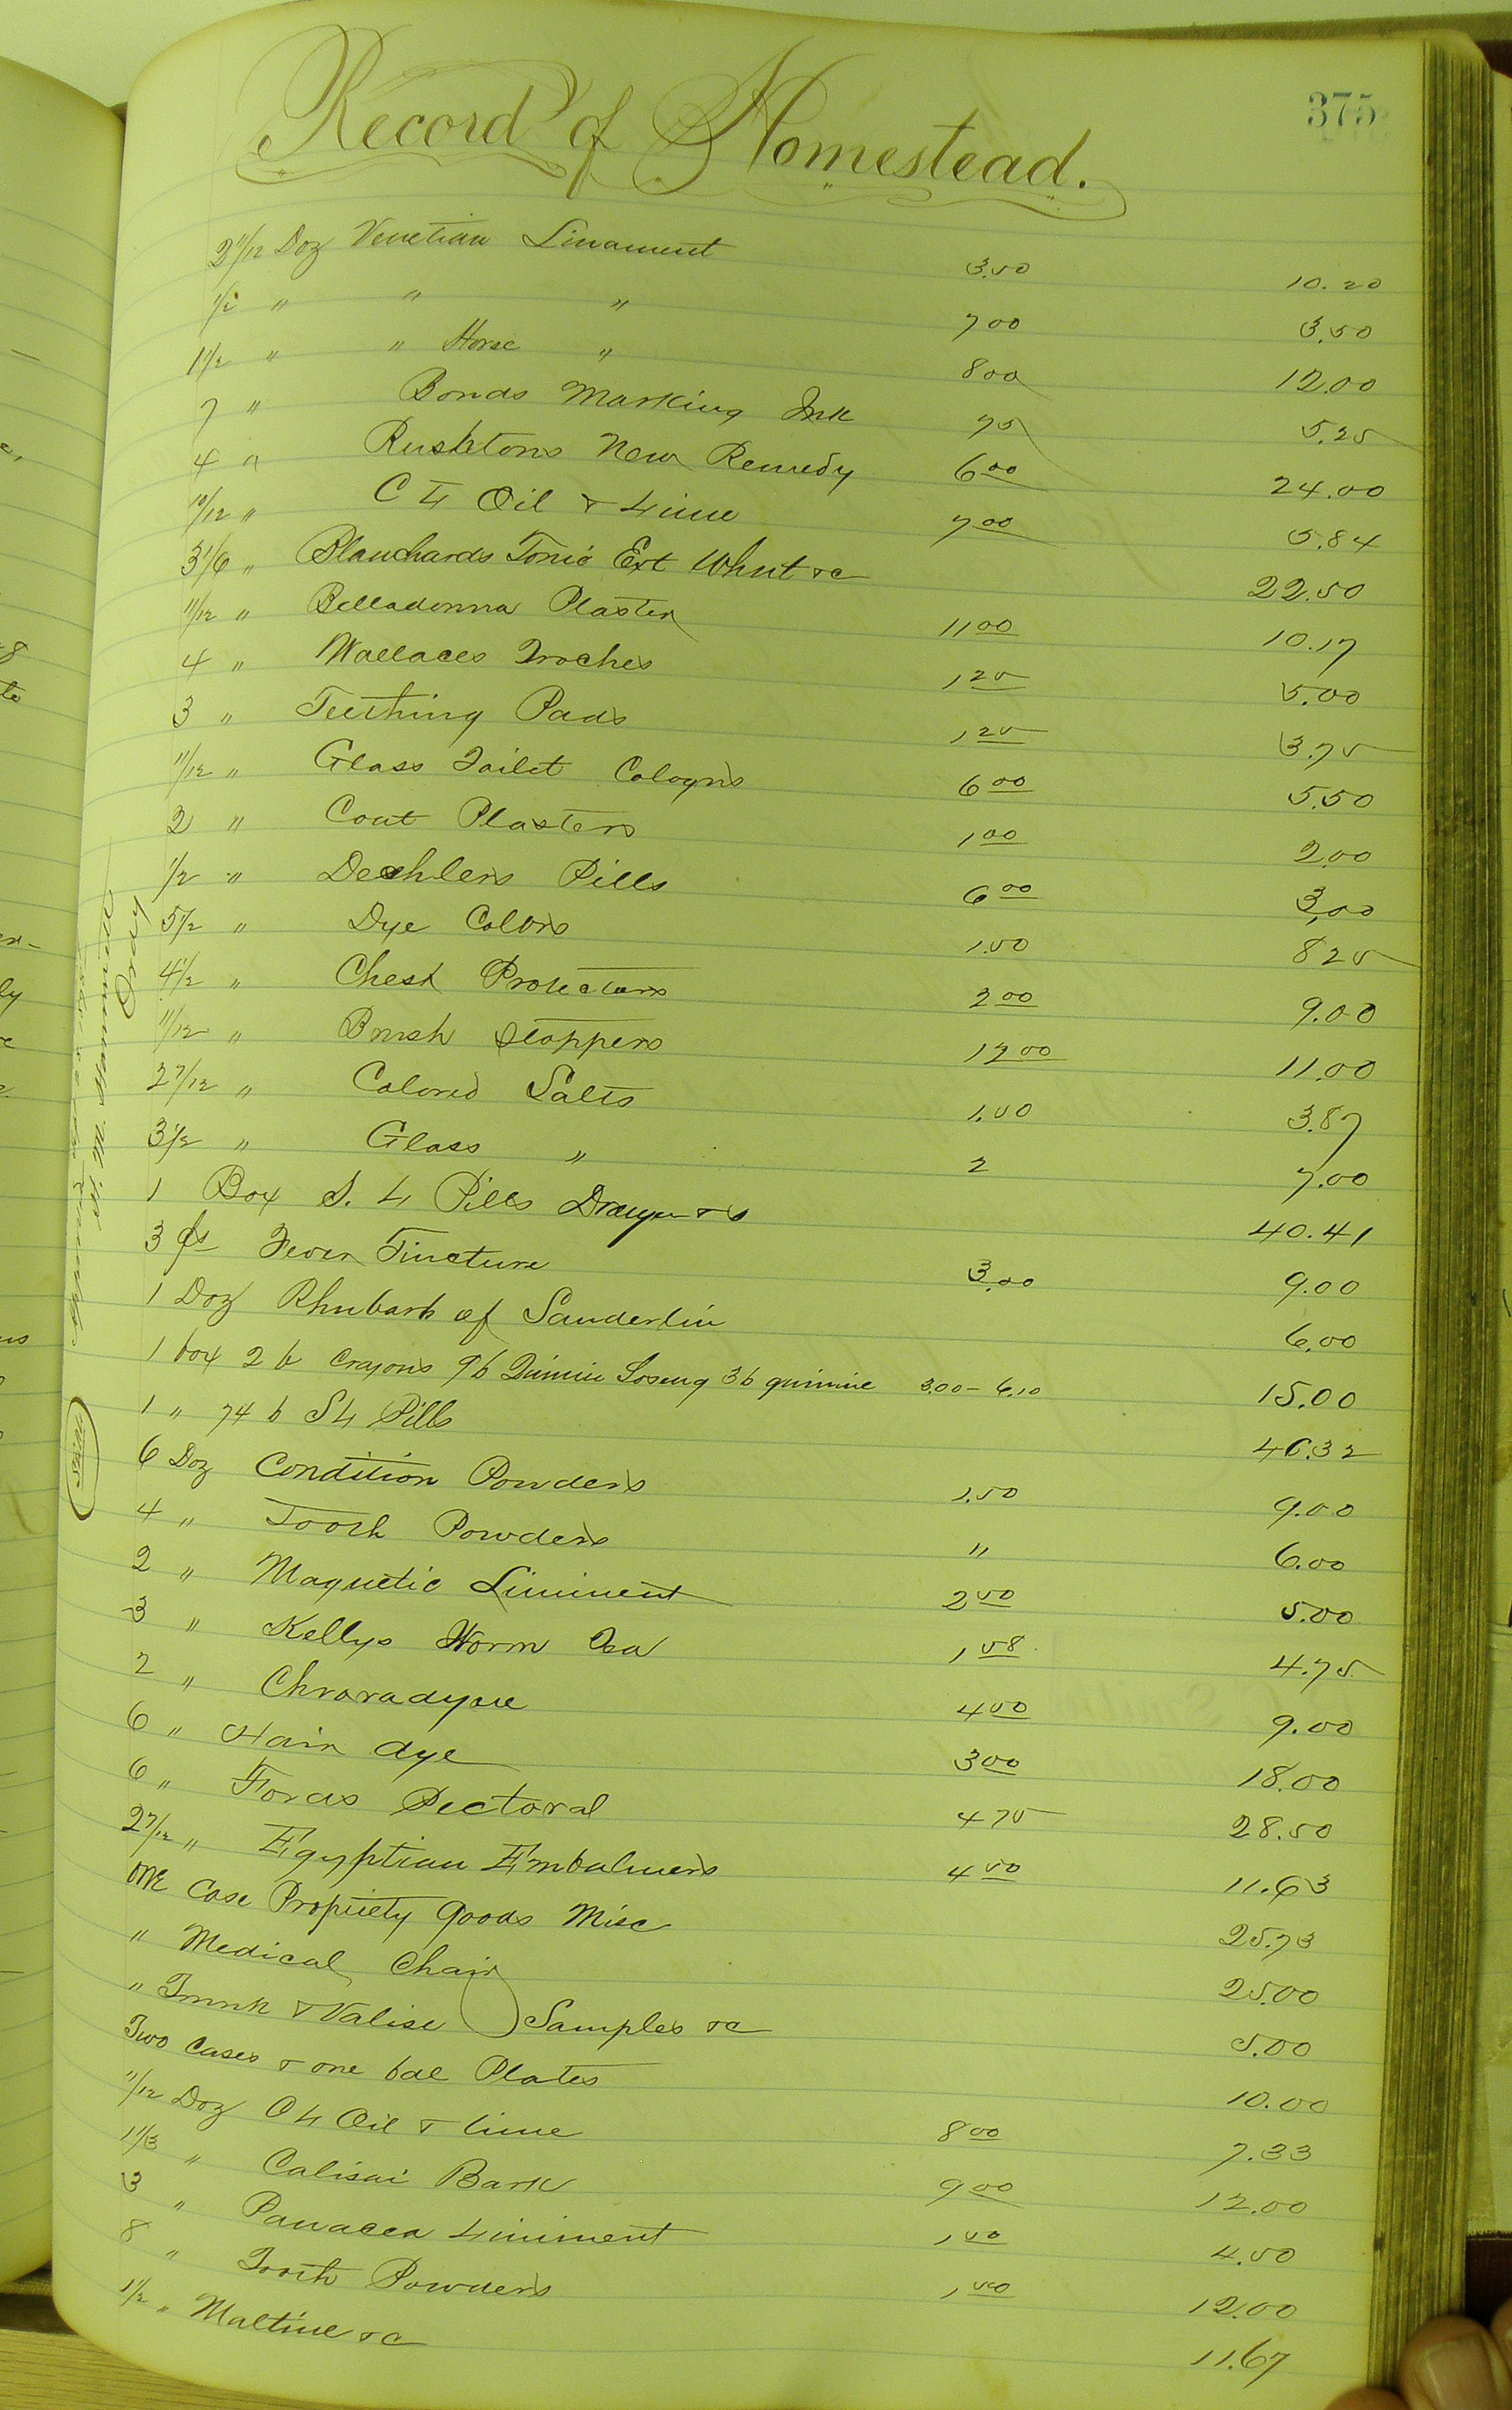 375
Record of Homestead.
2 11/12 Doz Venetian Linament 3.50 10.20
1/2 " " " 7 00 3.50
1 1/2 " " Horse " 8 00 12.00
7 " Bonds Marking Ink 75 5.25
4 " Rushtons New Remedy 6 00 24.00
10/12 " C L Oil & Lime 7 00 5.84
3 1/6 " Blanchards Tonic Ext Whut &c 22.50
11/12 " Belladonna Plaster 11 00 10.17
4 " Wallaces Troches 1 25 5.00
3 " Teething Pads 1 25 3.75
11/12 " Glass Toilet Colognes 6 00 5.50
2 " Cout Plasters 1 00 2.00
1/2 " Dechlers Pills 6 00 3.00
5 1/2 " Dye Colors 1.50 8 25
4 1/2 " Chest Protectors 2 00 9.00
11/12 " Brush Stoppers 12 00 11.00
2 7/12 " Colored Salts 1.50 3.87
3 1/2 " Glass " 2 7.00
1 Box S. L Pills 40.41
3 Fever Tincture 3.00 9.00
1 Doz Rhubarb of Sanderlin 6.00
1 box 2 b Crayons 9 b Quinine Loseng 3 b quinine 3.00 - 6.10 15.00
1 " 74 b S L Pills 46.32
6 Doz Condition Powders 1.50 9.00
4 " Tooth Powders " 6.00
2 " Magnetic Liniment 2 50 5.00
3 " Kellys Worm Tea 1 58 4.75
2 " 4 50 9.00
6 " Hair dye 3 00 18.00
6 " Pectoral 4 75 28.50
2 7/12 " Egyptian Embalmers 4 50 11.63
One Case Propriety Goods Misc 25.73
" Medical Chair 25.00
" Trunk & Valise ) Samples &c 5.00
Two Cases & one bal Plates 10.00
11/12 Doz C L Oil & lime 8 00 7.33
1 1/3 " Calisai Bark 9 00 12.00
3 " Panacea Liniment 1 50 4.50
8 " Tooth Powders 1 50 12.00
1 1/2 " Maltine &c 11.67